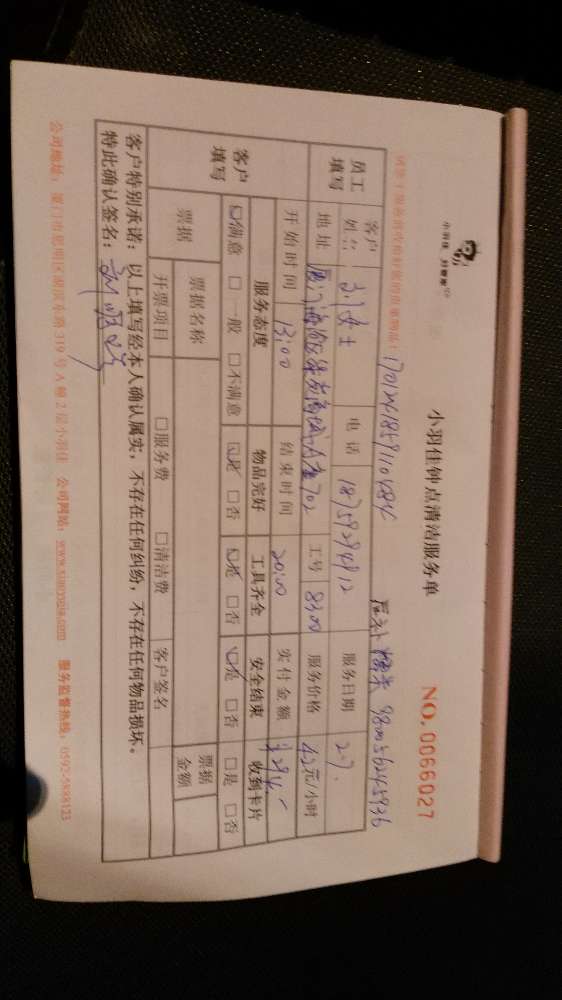 小羽佳 好管家
小羽佳钟点清洁服务单
NO. 0066027
员工填写
客户姓名 刘女士 电话 18759294812 服务日期 27.
地址 工号 8300 服务价格 42元/小时
开始时间 13:00 结束时间 20:00 实付金额 ¥294.-
客户填写
服务态度 物品完好 工具齐全 安全结束 收到卡片
☑满意 □一般 □不满意 ☑是 □否 ☑是 □否 ☑是 □否 □是 □否
票据 票据名称 票据金额
开票项目 □服务费 □清洁费 客户签名
客户特别承诺：以上填写经本人确认属实，不存在任何纠纷，不存在任何物品损坏。
特此确认签名：
公司地址：厦门市思明区湖滨东路319号A幢2层小羽佳 公司网站：www.xiaoyujia.com 服务监督热线：0592-5888123